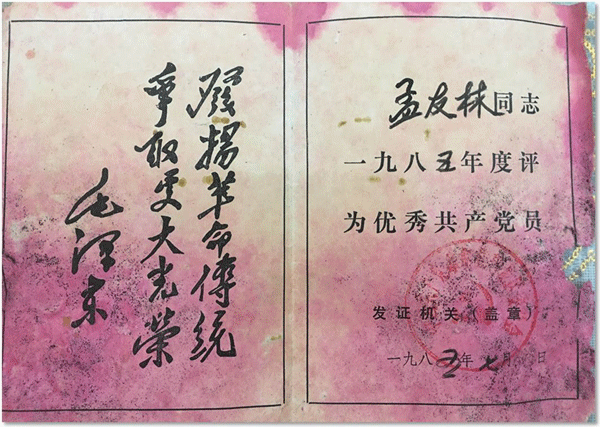 發揚革命傳統
爭取更大光榮
毛澤东
孟友林同志
一九八五年度评
为优秀共产党员
发证机关(盖章)
一九八五年七月日